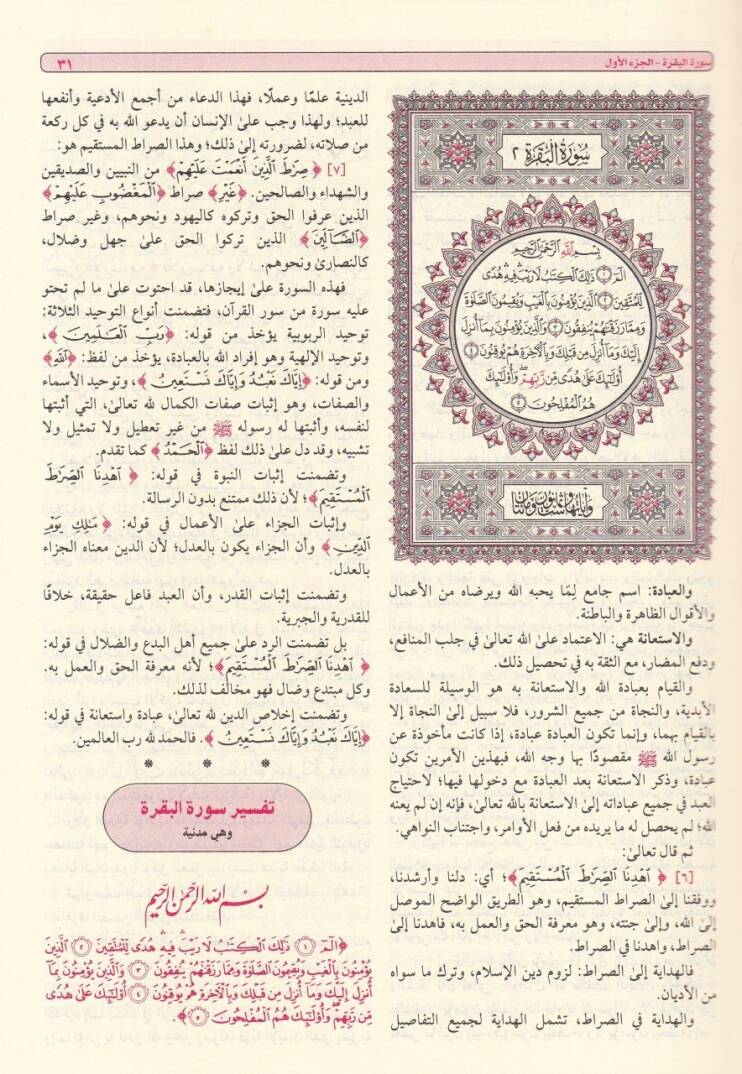 سورة البقرة - الجزء الأول
٣١
سُورَةُ البَقَرَةِ ٢
بِسْمِ اللَّهِ الرَّحْمَٰنِ الرَّحِيمِ
الٓمٓ ١ ذَٰلِكَ الْكِتَٰبُ لَا رَيْبَ فِيهِ هُدًى
لِّلْمُتَّقِينَ ٢ الَّذِينَ يُؤْمِنُونَ بِالْغَيْبِ وَيُقِيمُونَ الصَّلَوٰةَ
وَمِمَّا رَزَقْنَٰهُمْ يُنفِقُونَ ٣ وَالَّذِينَ يُؤْمِنُونَ بِمَا أُنزِلَ
إِلَيْكَ وَمَا أُنزِلَ مِن قَبْلِكَ وَبِالْآخِرَةِ هُمْ يُوقِنُونَ ٤
أُولَٰئِكَ عَلَىٰ هُدًى مِّن رَّبِّهِمْ وَأُولَٰئِكَ
هُمُ الْمُفْلِحُونَ ٥
وآياتها ست وثمانون ومائتان
والعبادة: اسم جامع لِمَا يحبه الله ويرضاه من الأعمال
والأقوال الظاهرة والباطنة.
والاستعانة هي: الاعتماد على الله تعالى في جلب المنافع،
ودفع المضار، مع الثقة به في تحصيل ذلك.
والقيام بعبادة الله والاستعانة به هو الوسيلة للسعادة
الأبدية، والنجاة من جميع الشرور، فلا سبيل إلى النجاة إلا
بالقيام بهما، وإنما تكون العبادة عبادة، إذا كانت مأخوذة عن
رسول الله ﷺ مقصودًا بها وجه الله، فبهذين الأمرين تكون
عبادة، وذكر الاستعانة بعد العبادة مع دخولها فيها؛ لاحتياج
العبد في جميع عباداته إلى الاستعانة بالله تعالى، فإنه إن لم يعنه
الله؛ لم يحصل له ما يريده من فعل الأوامر، واجتناب النواهي.
ثم قال تعالى:
[٦] ﴿اهْدِنَا الصِّرَٰطَ الْمُسْتَقِيمَ﴾؛ أي: دلنا وأرشدنا،
ووفقنا إلى الصراط المستقيم، وهو الطريق الواضح الموصل
إلى الله، وإلى جنته، وهو معرفة الحق والعمل به، فاهدنا إلى
الصراط، واهدنا في الصراط.
فالهداية إلى الصراط: لزوم دين الإسلام، وترك ما سواه
من الأديان.
والهداية في الصراط، تشمل الهداية لجميع التفاصيل
الدينية علمًا وعملًا، فهذا الدعاء من أجمع الأدعية وأنفعها
للعبد؛ ولهذا وجب على الإنسان أن يدعو الله به في كل ركعة
من صلاته، لضرورته إلى ذلك؛ وهذا الصراط المستقيم هو:
[٧] ﴿صِرَٰطَ الَّذِينَ أَنْعَمْتَ عَلَيْهِمْ﴾ من النبيين والصديقين
والشهداء والصالحين. ﴿غَيْرِ﴾ صراط ﴿الْمَغْضُوبِ عَلَيْهِمْ﴾
الذين عرفوا الحق وتركوه كاليهود ونحوهم، وغير صراط
﴿الضَّالِّينَ﴾ الذين تركوا الحق على جهل وضلال،
كالنصارى ونحوهم.
فهذه السورة على إيجازها، قد احتوت على ما لم تحتو
عليه سورة من سور القرآن، فتضمنت أنواع التوحيد الثلاثة:
توحيد الربوبية يؤخذ من قوله: ﴿رَبِّ الْعَٰلَمِينَ﴾،
وتوحيد الإلهية وهو إفراد الله بالعبادة، يؤخذ من لفظ: ﴿اللَّهِ﴾
ومن قوله: ﴿إِيَّاكَ نَعْبُدُ وَإِيَّاكَ نَسْتَعِينُ﴾، وتوحيد الأسماء
والصفات، وهو إثبات صفات الكمال لله تعالى، التي أثبتها
لنفسه، وأثبتها له رسوله ﷺ من غير تعطيل ولا تمثيل ولا
تشبيه، وقد دل على ذلك لفظ ﴿الْحَمْدُ﴾ كما تقدم.
وتضمنت إثبات النبوة في قوله: ﴿اهْدِنَا الصِّرَٰطَ
الْمُسْتَقِيمَ﴾؛ لأن ذلك ممتنع بدون الرسالة.
وإثبات الجزاء على الأعمال في قوله: ﴿مَٰلِكِ يَوْمِ
الدِّينِ﴾ وأن الجزاء يكون بالعدل؛ لأن الدين معناه الجزاء
بالعدل.
وتضمنت إثبات القدر، وأن العبد فاعل حقيقة، خلافًا
للقدرية والجبرية.
بل تضمنت الرد على جميع أهل البدع والضلال في قوله:
﴿اهْدِنَا الصِّرَٰطَ الْمُسْتَقِيمَ﴾؛ لأنه معرفة الحق والعمل به.
وكل مبتدع وضال فهو مخالف لذلك.
وتضمنت إخلاص الدين لله تعالى، عبادة واستعانة في قوله:
﴿إِيَّاكَ نَعْبُدُ وَإِيَّاكَ نَسْتَعِينُ﴾. فالحمد لله رب العالمين.
* * *
تفسير سورة البقرة
وهي مدنية
بسم الله الرحمن الرحيم
﴿الٓمٓ ١ ذَٰلِكَ الْكِتَٰبُ لَا رَيْبَ فِيهِ هُدًى لِّلْمُتَّقِينَ ٢ الَّذِينَ
يُؤْمِنُونَ بِالْغَيْبِ وَيُقِيمُونَ الصَّلَوٰةَ وَمِمَّا رَزَقْنَٰهُمْ يُنفِقُونَ ٣ وَالَّذِينَ يُؤْمِنُونَ بِمَا
أُنزِلَ إِلَيْكَ وَمَا أُنزِلَ مِن قَبْلِكَ وَبِالْآخِرَةِ هُمْ يُوقِنُونَ ٤ أُولَٰئِكَ عَلَىٰ هُدًى
مِّن رَّبِّهِمْ وَأُولَٰئِكَ هُمُ الْمُفْلِحُونَ ٥﴾.